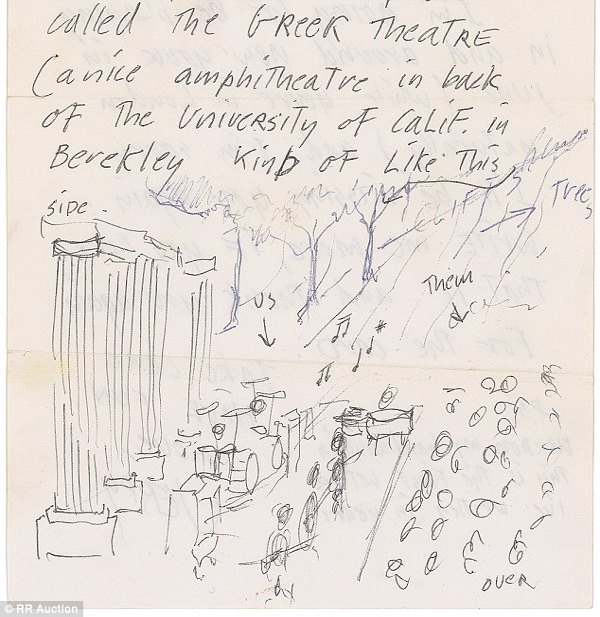 called The GREEK THEATRE
(a nice amphitheatre in back
of The University of CALIF. in
Berekley Kind of Like This
side.
CLIFFS
Trees
US
Them
OVER
© RR Auction